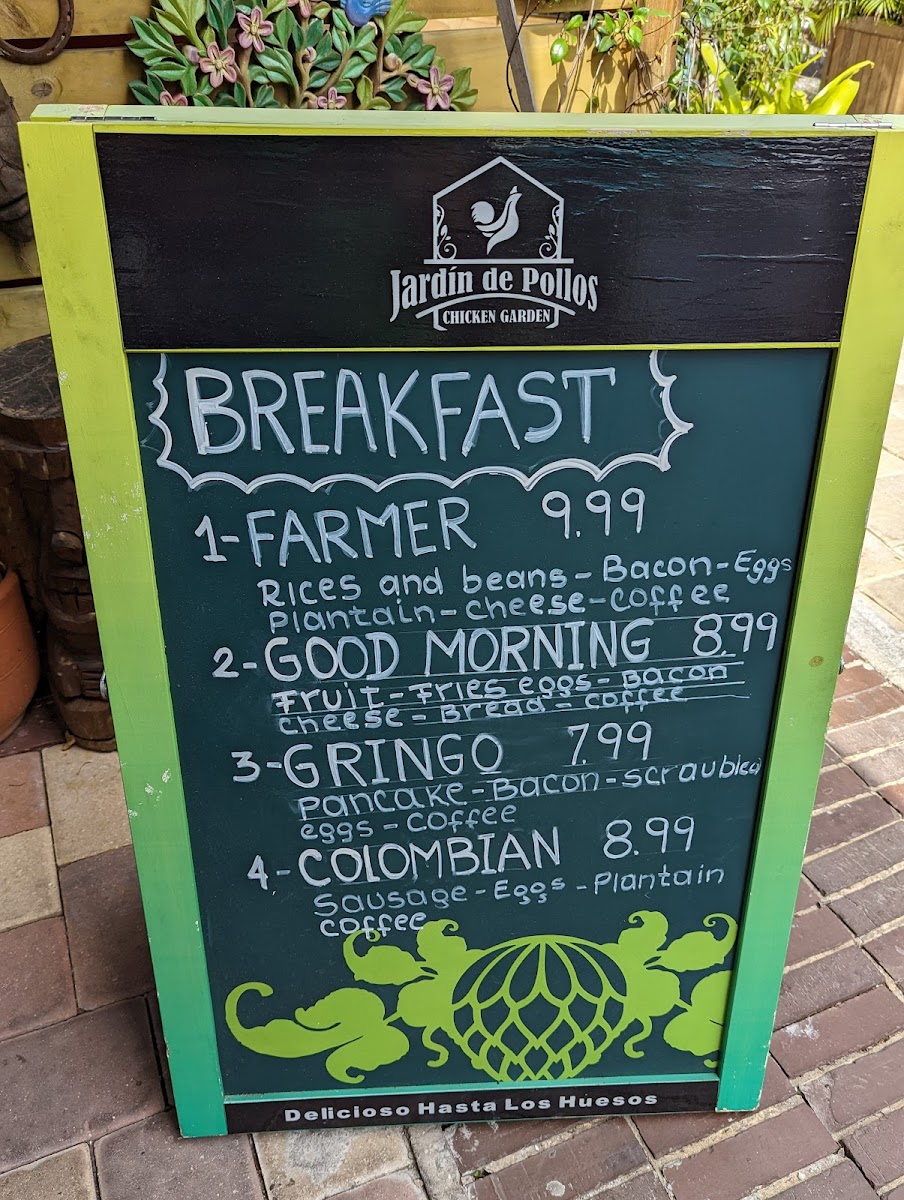 Jardín de Pollos
CHICKEN GARDEN
BREAKFAST
1-FARMER 9.99
Rices and beans-Bacon-Eggs
Plantain-cheese-coffee
2-GOOD MORNING 8.99
Fruit-Fries eggs-Bacon
cheese-Bread-coffee
3-GRINGO 7.99
Pancake-Bacon-scraubled
eggs-coffee
4-COLOMBIAN 8.99
Sausage-Eggs-Plantain
coffee
Delicioso Hasta Los Huesos